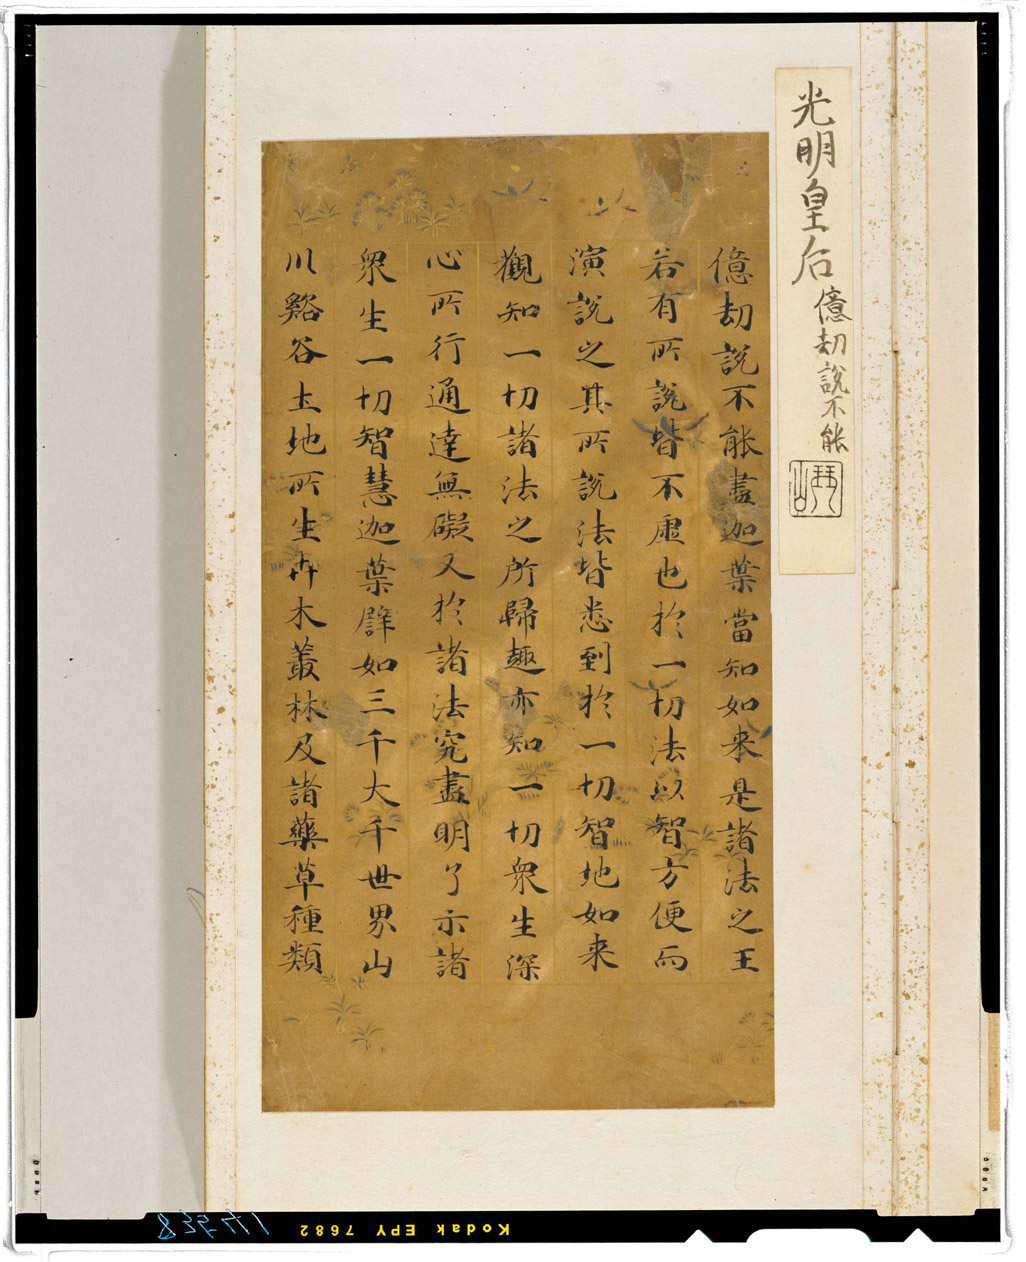 光明皇后 億劫說不能
億劫說不能盡迦葉當知如来是諸法之王
若有所說皆不虛也於一切法以智方便而
演說之其所說法皆悉到於一切智地如来
觀知一切諸法之所歸趣亦知一切衆生深
心所行通達無礙又於諸法究盡明了示諸
衆生一切智慧迦葉譬如三千大千世界山
川谿谷土地所生卉木叢林及諸藥草種類
Kodak EPY 7682